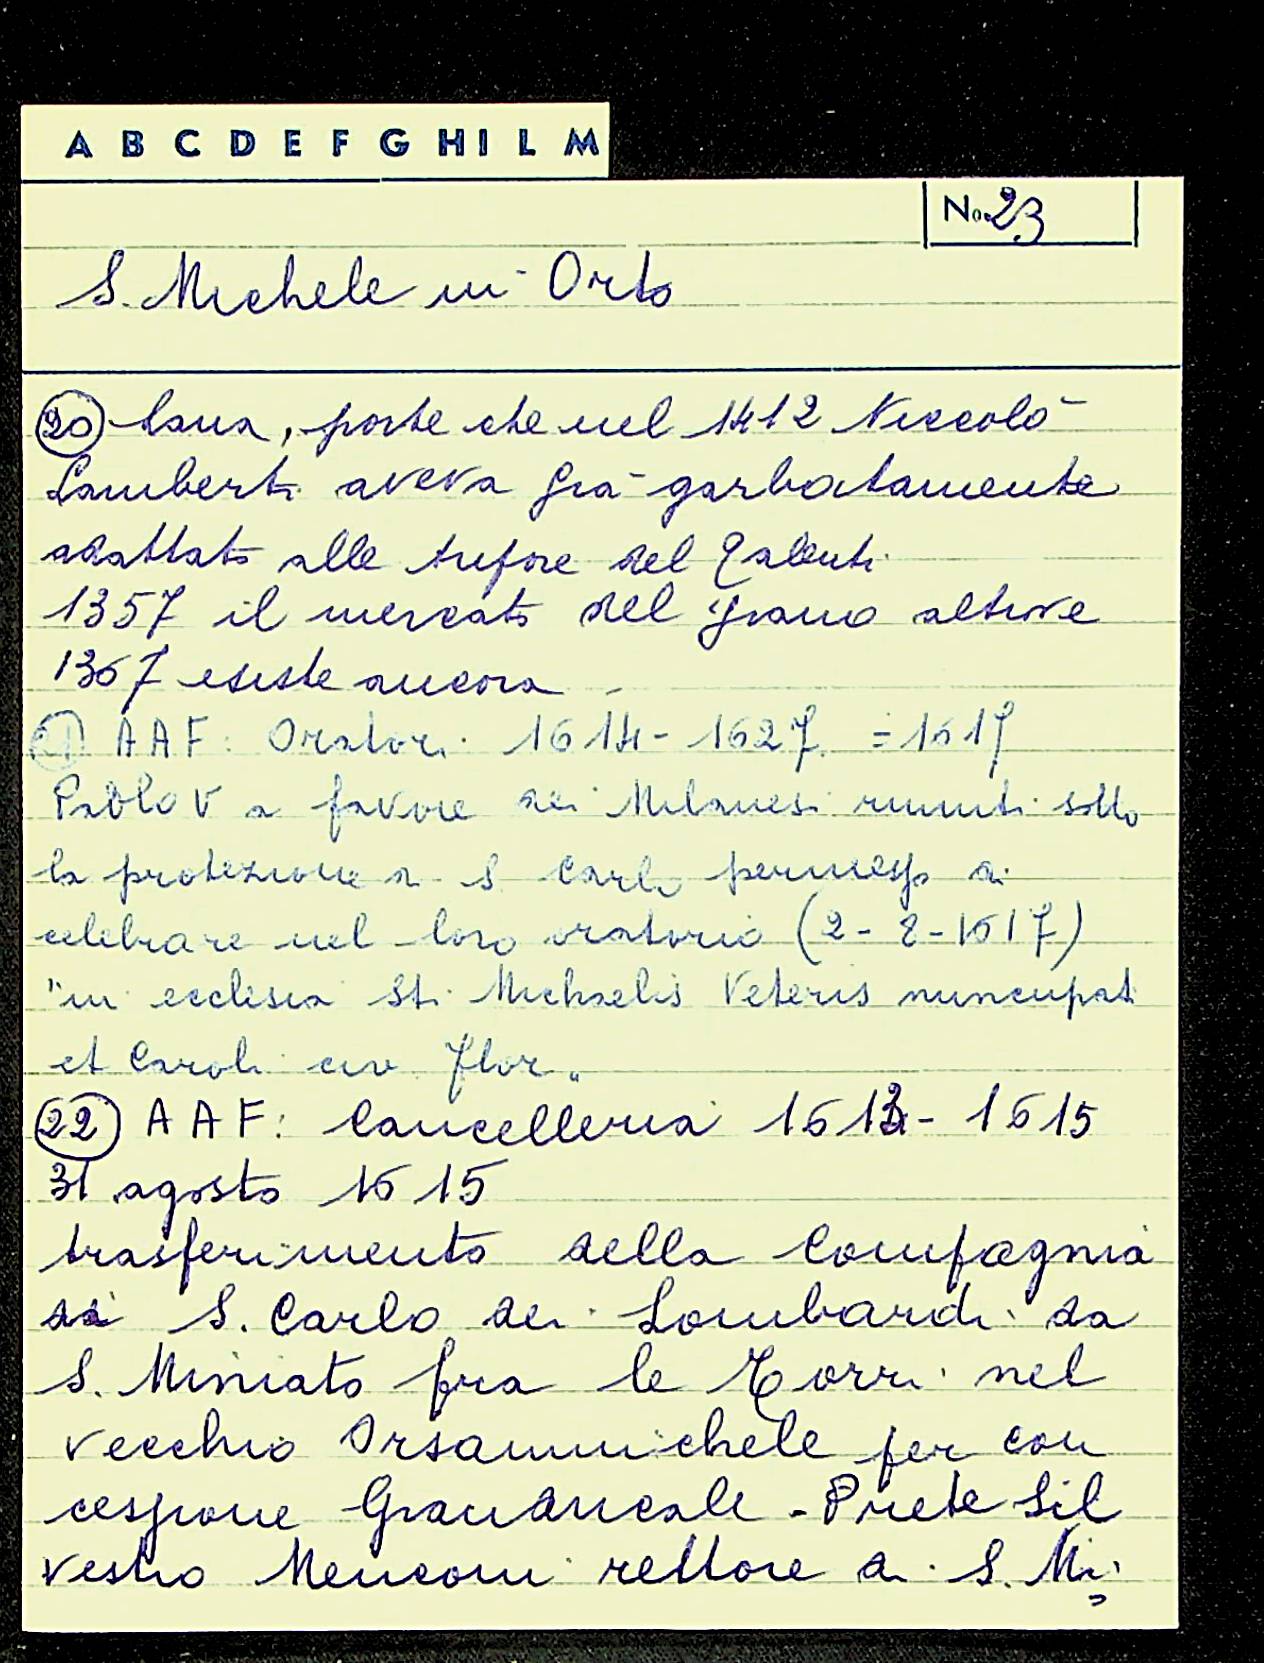 A B C D E F G H I L M
No. 23
S. Michele in Orto
20 Lana, porte che nel 1412 Niccolò
Lamberti aveva già garbatamente
adattato alle trifore del Talenti
1357 il mercato del grano altrove
1367 esiste ancora
21 AAF: Oratori 1614-1627 = 1617
Paolo V a favore dei Milanesi riuniti sotto
la protezione di S Carlo permesso di
celebrare nel loro oratorio (2-8-1617)
"in ecclesia Sti Michaelis Veteris nuncupati
et Caroli civ. Flor."
22 AAF: Cancelleria 1612-1615
31 agosto 1615
trasferimento della Compagnia
di S. Carlo dei Lombardi da
S. Miniato fra le Torri nel
vecchio Orsanmichele per con
cessione Granducale - Prete Sil
vestro Menconi rettore di S. Mi